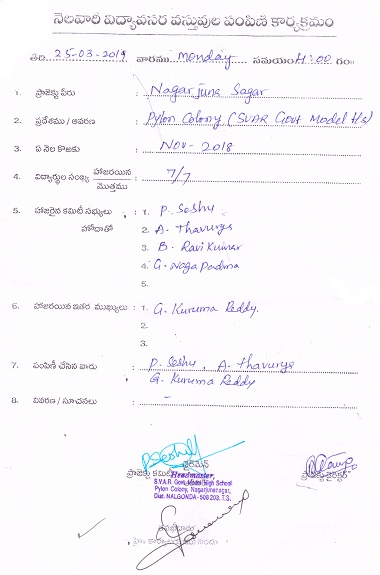 నెలవారి విద్యావసర వస్తువుల పంపిణి కార్యక్రమం
తేది 25-03-2019 వారము monday సమయం 4:00 గం॥
1. ప్రాజెక్టు పేరు : Nagarjuna Sagar
2. ప్రదేశము / ఆవరణ : Pylon Colony (SVAR Govt Model H/s)
3. ఏ నెల కొఱకు : Nov- 2018
4. విద్యార్థుల సంఖ్య హాజరయిన / మొత్తము : 7/7
5. హాజరైన కమిటీ సభ్యులు : 1. P. Seshu
హోదాతో 2. A. Thavurya
3. B. Ravi Kumar
4. G. Naga Padma
5.
6. హాజరయిన ఇతర ముఖ్యులు : 1. G. Kuruma Reddy.
2.
3.
7. పంపిణీ చేసిన వారు : P. Seshu, A. Thavurya
G. Kuruma Reddy
8. వివరణ / సూచనలు : –
ప్రాజెక్టు కమిటీ చైర్‌మేన్ ప్రాజెక్టు డైరెక్టర్
Headmaster,
S.V.A.R. Govt. Model High School
Pylon Colony, Nagarjunanagar,
Dist. NALGONDA - 508 203. T.S.